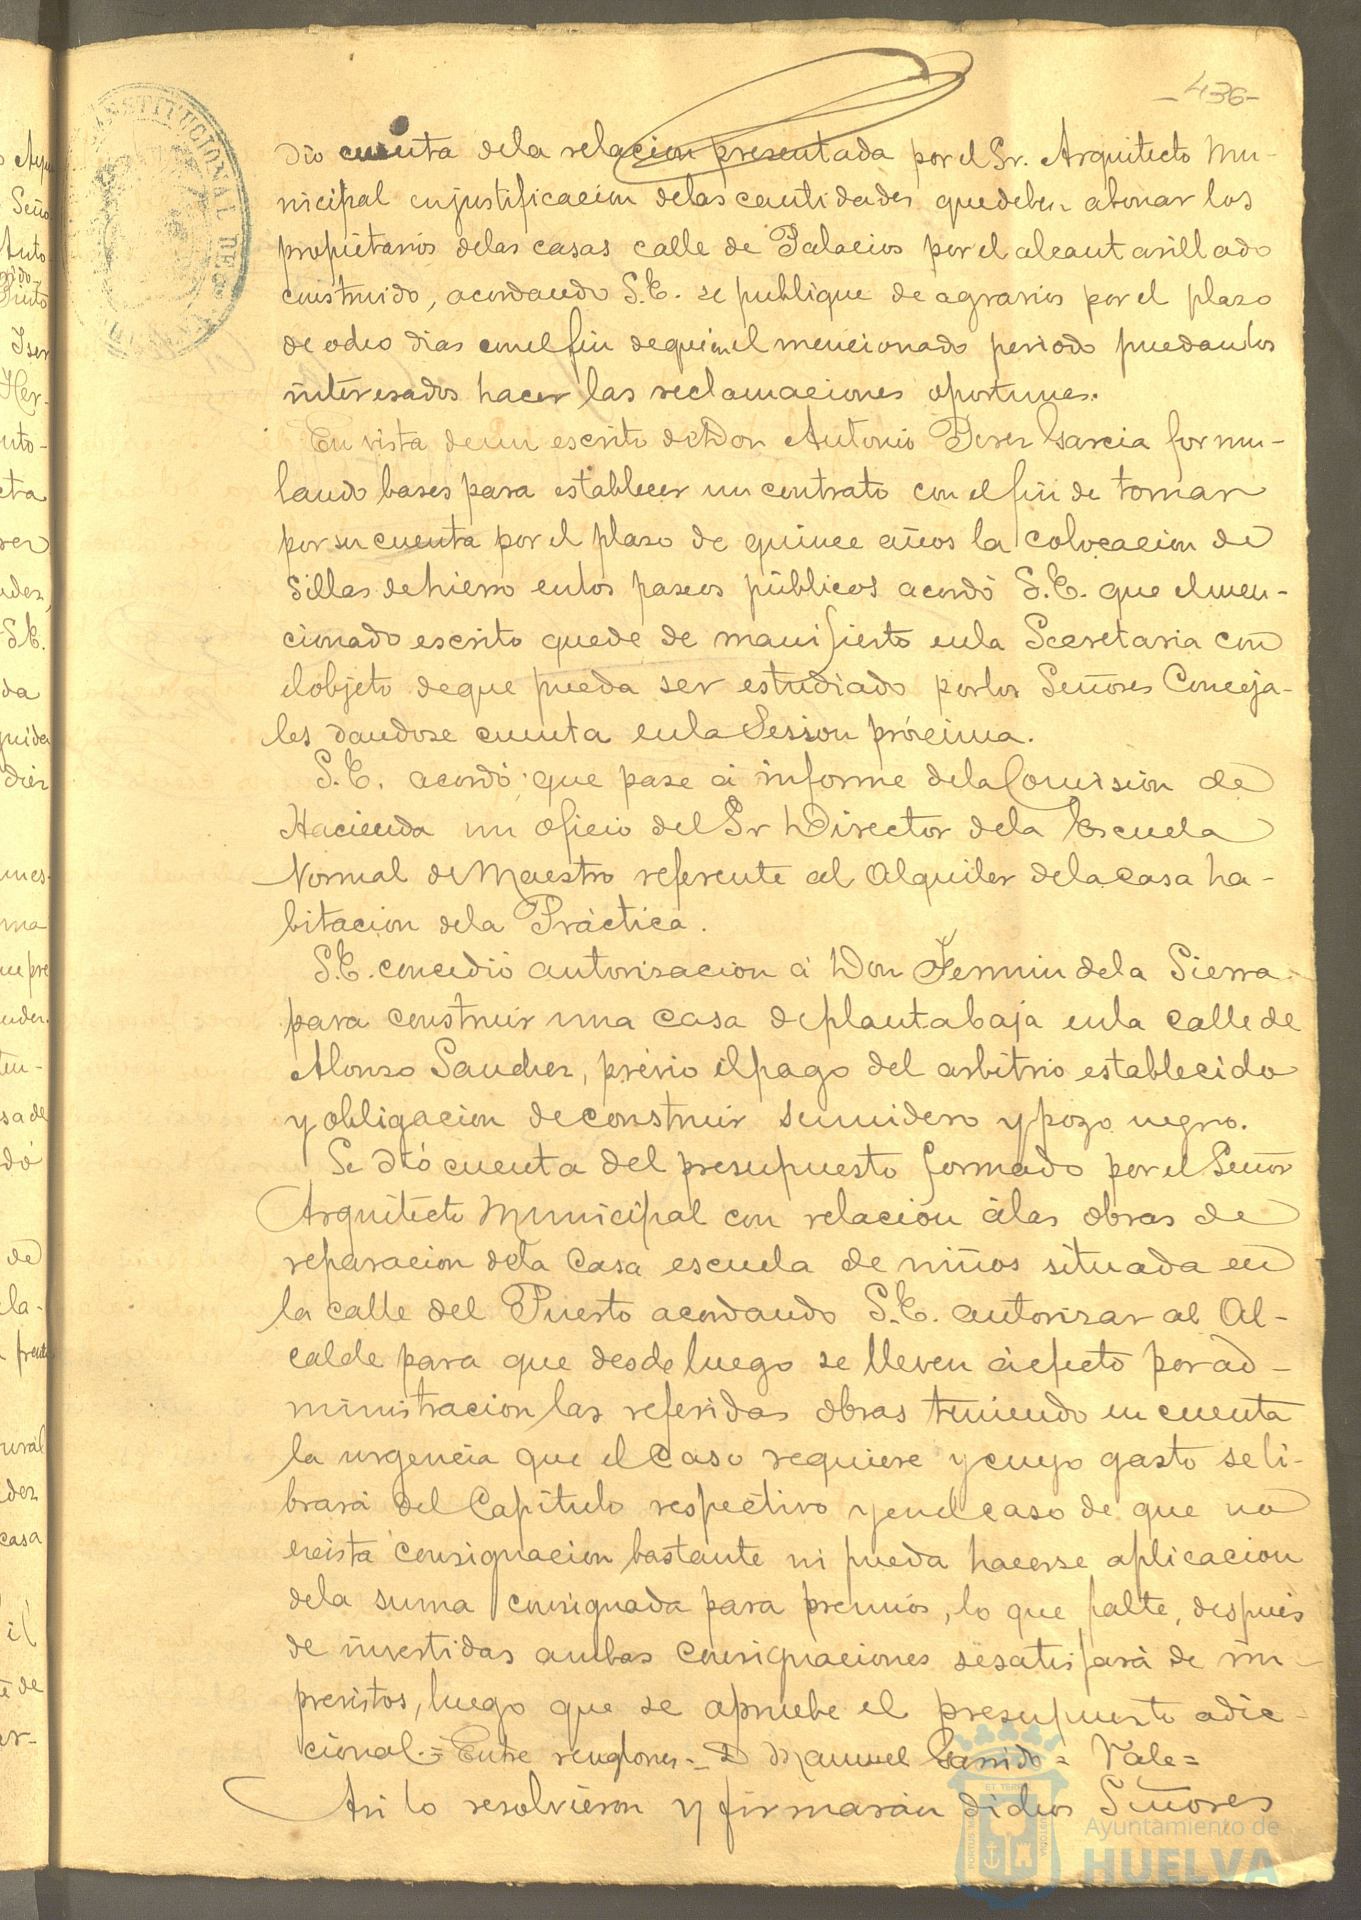 -436-
dio cuenta dela relacion presentada por el Sr. Arquitecto Mu-
nicipal en justificacion delas cantidades que deben abonar los
propietarios delas casas calle de Palacios por el alcantarillado
construido, acordando S.E. se publique de agravios por el plazo
de ocho dias con el fin de que en el mencionado periodo puedan los
interesados hacer las reclamaciones oportunas.
En vista de un escrito de Don Antonio Perez Garcia formu-
lando bases para establecer un contrato con el fin de tomar
por su cuenta por el plazo de quince años la colocacion de
sillas de hierro en los paseos públicos acordó S.E. que el men-
cionado escrito quede de manifiesto en la Secretaria con
el objeto de que pueda ser estudiado por los Señores Conceja-
les dandose cuenta en la Sesion próxima.
S.E. acordó que pase á informe dela Comision de
Hacienda un oficio del Sr Director dela Escuela
Normal de Maestro referente al Alquiler dela casa ha-
bitacion dela Práctica.
S.E. concedió autorizacion á Don Fermin dela Sierra
para construir una casa de planta baja en la calle de
Alonso Sanchez, prévio el pago del arbitrio establecido
y obligacion de construir sumidero y pozo negro.
Se dió cuenta del presupuesto formado por el Señor
Arquitecto Municipal con relacion á las obras de
reparacion dela Casa escuela de niños situada en
la calle del Puerto acordando S.E. autorizar al Al-
calde para que desde luego se lleven á efecto por ad-
ministracion las referidas obras teniendo en cuenta
la urgencia que el caso requiere y cuyo gasto se li-
brará del Capítulo respectivo y en el caso de que no
exista consignacion bastante ni pueda hacerse aplicacion
dela suma consignada para premios, lo que falte, despues
de invertidas ambas consignaciones se satisfará de im-
previstos, luego que se apruebe el presupuesto adic-
cional.= Entre renglones = D Manuel Garrido = Vale =
Asi lo resolvieron y firmarán dichos Señores
Ayuntamiento de
HUELVA